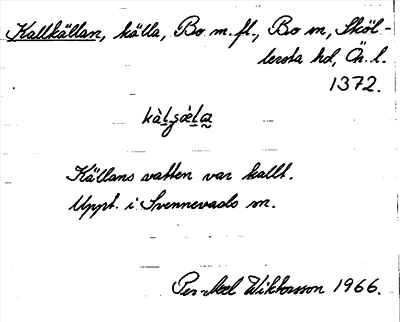 Kallkällan, källa, Bo m.fl., Bo sn, Sköl-
lersta hd, Ör. l.
1372.
Källans vatten var kallt.
Uppt. i Svennevads sn.
Per-Axel Wiktorsson 1966.